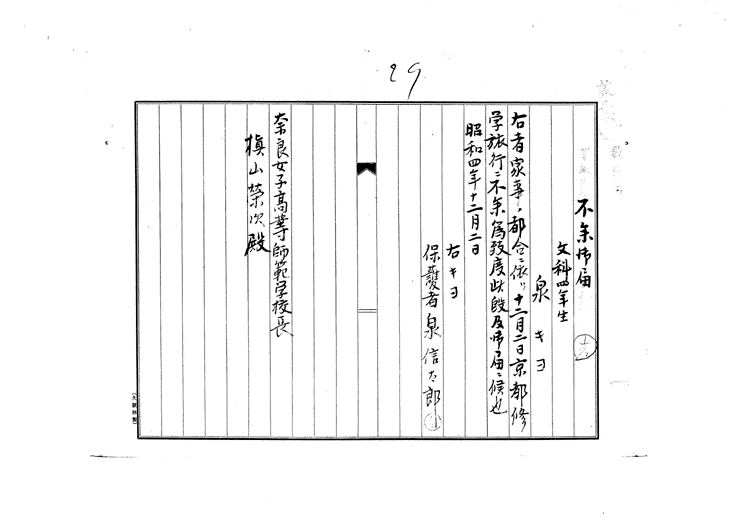 29
不参御届
文科四年生
泉キヨ
右者家事ノ都合ニ依リ十二月二日京都修
学旅行ニ不参為致度此段及御届ニ候也
昭和四年十二月二日
右キヨ
保護者泉信太郎
奈良女子高等師範学校長
槙山榮次殿